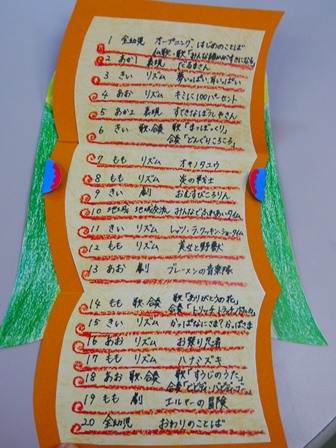 1 全幼児 オープニング、はじめのことば
2 あか1 表現 だるまさん
3 きい リズム 夢いっぱい
4 あお リズム キミに100パーセント
5 あか2 表現 すてきなぼうしやさん
6 きい 歌・合奏 歌「まつぼっくり」
合奏「どんぐりころころ」
7 もも リズム オサノタユウ
8 もも リズム 炎の戦士
9 きい 劇 おむすびころりん
10 地域 地域交流 みんなとふれあいタイム
11 きい リズム レッツ・ラ・クッキン・ショータイム
12 もも リズム 美女と野獣
13 あお 劇 ブレーメンの音楽隊
14 もも 歌・合奏 歌「ありがとうの花」
合奏
15 きい リズム かっぱなにさま?かっぱさま
16 あお リズム お祭り忍者
17 もも リズム ハナミズキ
18 あお 歌・合奏 歌「すうじのうた」
合奏
19 もも 劇 エルマーの冒険
20 全幼児 おわりのことば